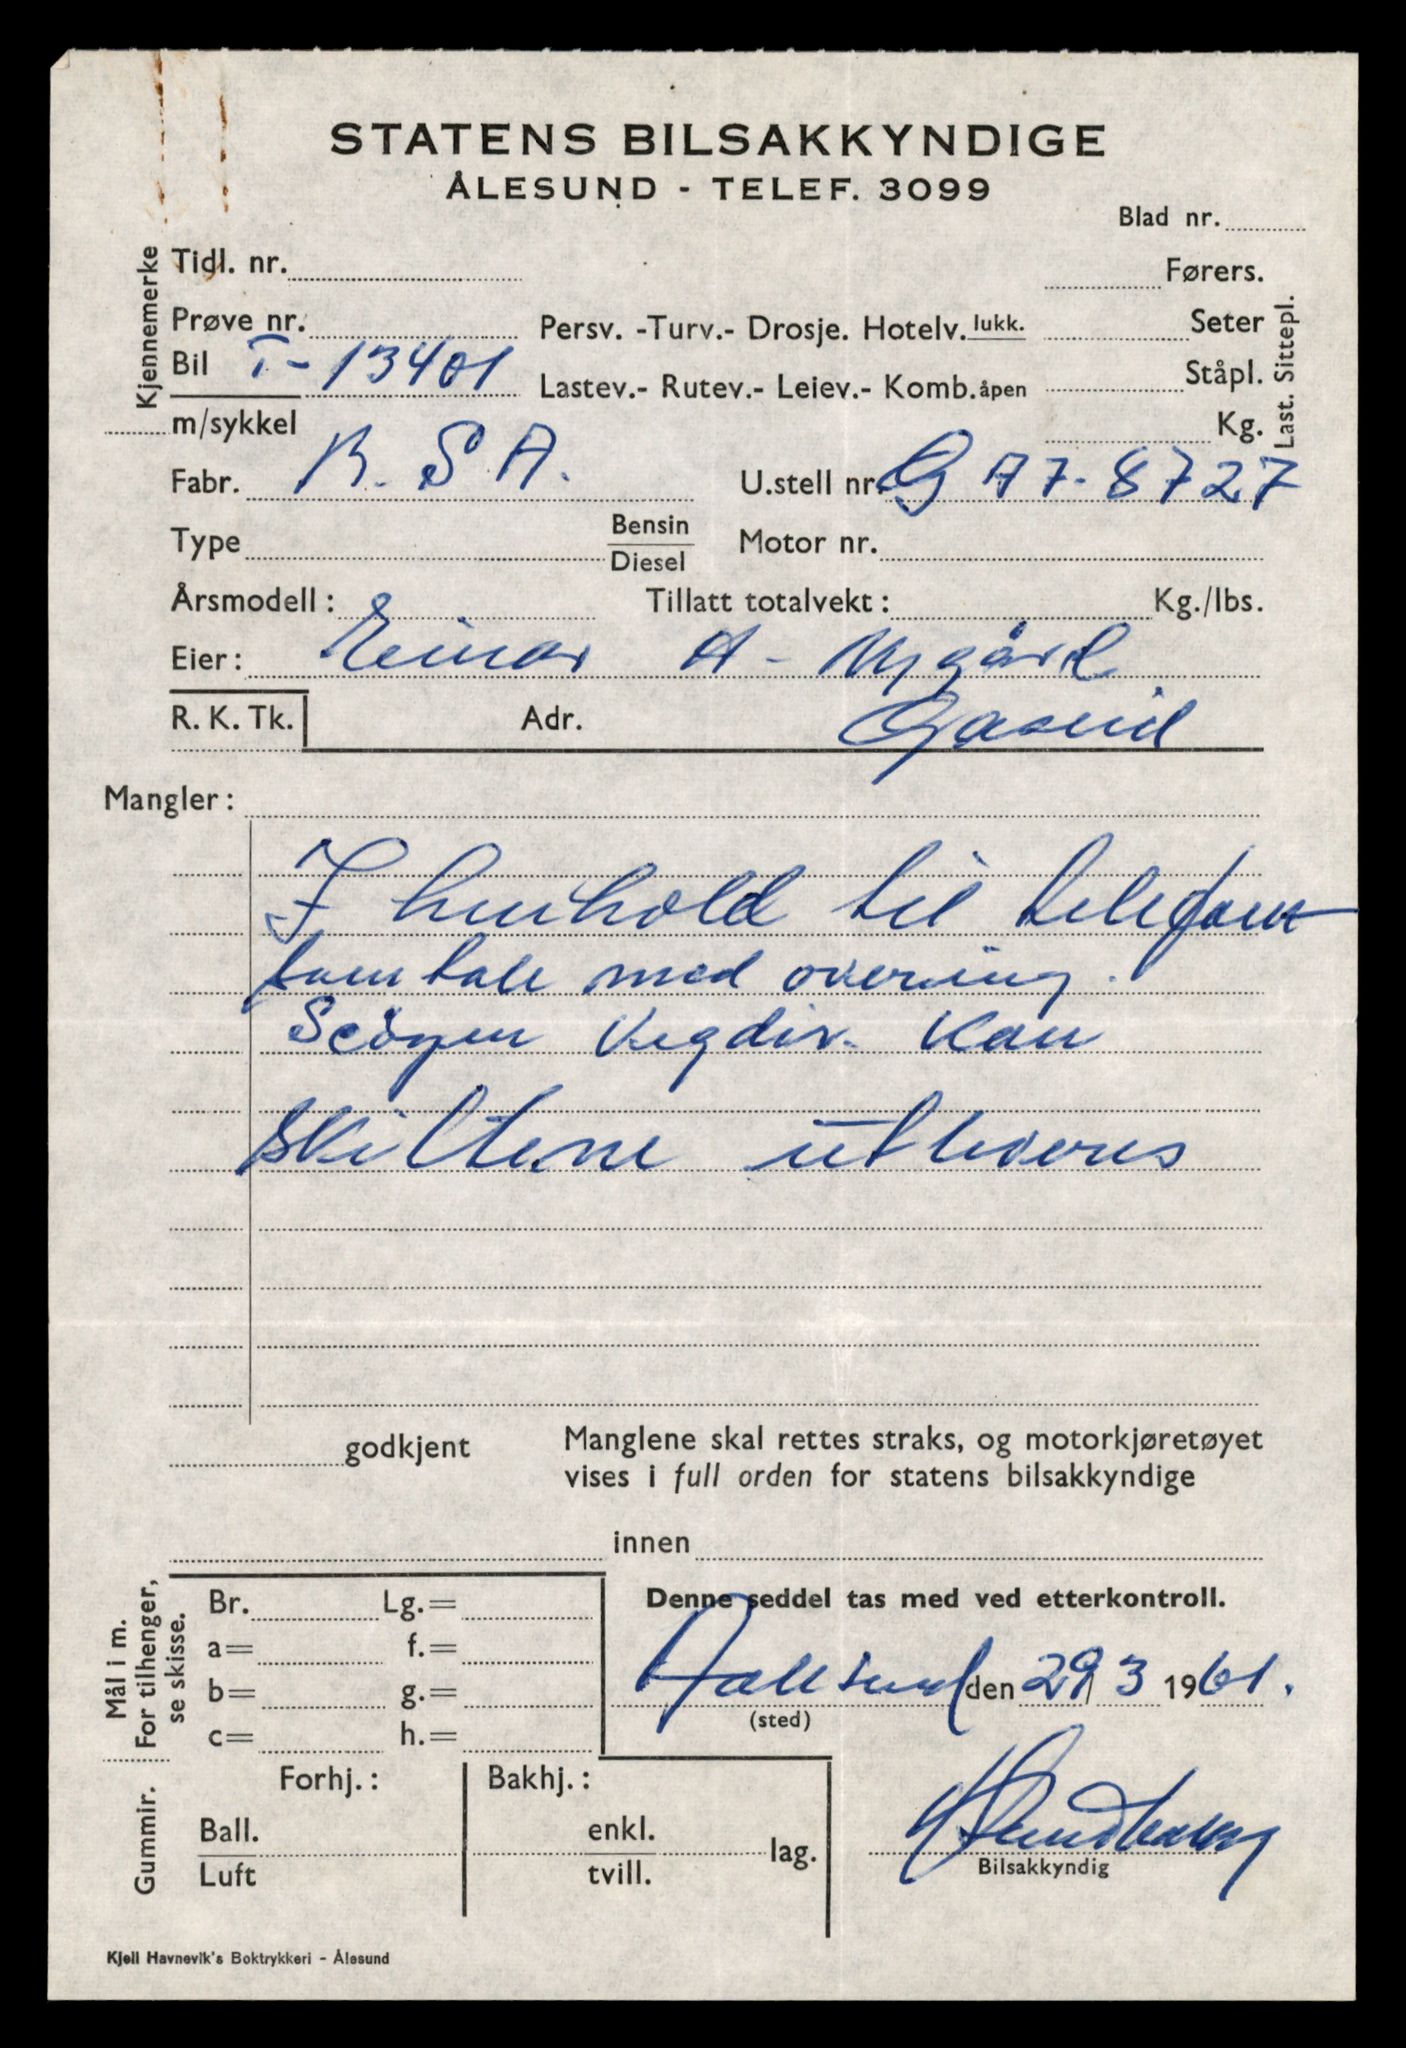 STATENS BILSAKKYNDIGE
ÅLESUND - TELEF. 3099
Blad nr.
Kjennemerke
Tidl. nr.
Førers.
Prøve nr.
Persv. -Turv.- Drosje. Hotelv. lukk.
Seter
Bil T-13401
Lastev.- Rutev.- Leiev.- Komb. åpen
Ståpl.
Last. Sittepl.
m/sykkel
Kg.
Fabr. B.S.A.
U.stell nr. GA7-8727
Type
Bensin
Diesel
Motor nr.
Årsmodell:
Tillatt totalvekt: Kg./lbs.
Eier: Einar A- Nygård
R. K. Tk.
Adr.
Mangler:
I henhold til telefon
samtale med overing.
Vegdir. Kan
skiltene utleveres
godkjent
Manglene skal rettes straks, og motorkjøretøyet
vises i full orden for statens bilsakkyndige
innen
Mål i m.
For tilhenger,
se skisse.
Br. Lg.=
a= f.=
b= g.=
c= h.=
Denne seddel tas med ved etterkontroll.
Aalesund den 29/3 1961.
(sted)
Gummir.
Forhj.:
Ball.
Luft
Bakhj.:
enkl.
tvill.
lag.
Bilsakkyndig
Kjell Havnevik's Boktrykkeri - Ålesund